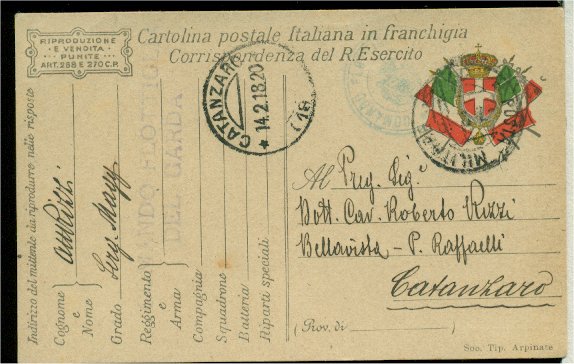 RIPRODUZIONE
E VENDITA
PUNITE
ART. 258 E 270 C.P.
Cartolina postale Italiana in franchigia
Corrispondenza del R. Esercito
CATANZARO
* 14.2.18.20
POSTA
MILITARE
Indirizzo del mittente da riprodurre nelle risposte
Cognome
e
Nome
Grado Serg. Magg.
Reggimento
e
Arma
NDO FLOTTI
DEL GARDA
Compagnia
Squadrone
Batteria
Riparti speciali
Al Preg. Sig.
Dott. Cav. Roberto Rizzi
Bellavista - P. Raffaelli
Catanzaro
(Prov. di )
Soc. Tip. Arpinate